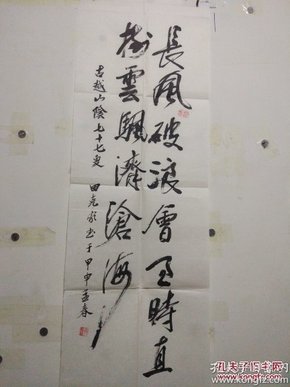 長風破浪會有時直
掛雲颿濟滄海
古越山陰七十七叟
田 书于甲申孟春
孔夫子旧书网